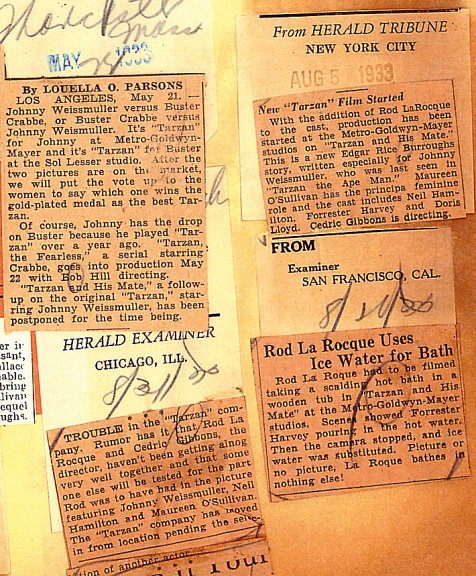 Mass
MAY 1933
By LOUELLA O. PARSONS
LOS ANGELES, May 21. —
Johnny Weissmuller versus Buster
Crabbe, or Buster Crabbe versus
Johnny Weismuller. It's "Tarzan"
for Johnny at Metro-Goldwyn-
Mayer and it's "Tarzan" for Buster
at the Sol Lesser studio. After the
two pictures are on the market,
we will put the vote up to the
women to say which one wins the
gold-plated medal as the best Tar-
zan.
Of course, Johnny has the drop
on Buster because he played "Tar-
zan" over a year ago. "Tarzan,
the Fearless," a serial starring
Crabbe, goes into production May
22 with Bob Hill directing.
"Tarzan and His Mate," a follow-
up on the original "Tarzan," star-
ring Johnny Weissmuller, has been
postponed for the time being.
HERALD EXAMINER
CHICAGO, ILL.
TROUBLE in the "Tarzan" com-
pany. Rumor has it that Rod La
Rocque and Cedric Gibbons, the
director, haven't been getting along
very well together and that some
one else will be tested for the part
Rod was to have had in the picture
featuring Johnny Weissmuller, Neil
Hamilton and Maureen O'Sullivan.
The "Tarzan" company has moved
in from location pending the selec-
tion of another actor.
From HERALD TRIBUNE
NEW YORK CITY
AUG 5 1933
New "Tarzan" Film Started
With the addition of Rod LaRocque
to the cast, production has been
started at the Metro-Goldwyn-Mayer
studios on "Tarzan and His Mate."
This is a new Edgar Rice Burroughs
story, written especially for Johnny
Weissmuller, who was last seen in
"Tarzan the Ape Man." Maureen
O'Sullivan has the principa feminine
role and the cast includes Neil Ham-
ilton, Forrester Harvey and Doris
Lloyd. Cedric Gibbons is directing.
FROM
Examiner
SAN FRANCISCO, CAL.
Rod La Rocque Uses
Ice Water for Bath
Rod La Roque had to be filmed
taking a scalding hot bath in a
wooden tub in "Tarzan and His
Mate" at the Metro-Goldwyn-Mayer
studios. Scenes showed Forrester
Harvey pouring in the hot water.
Then the camera stopped, and ice
water was substituted. Picture or
no picture, La Roque bathes in
nothing else!